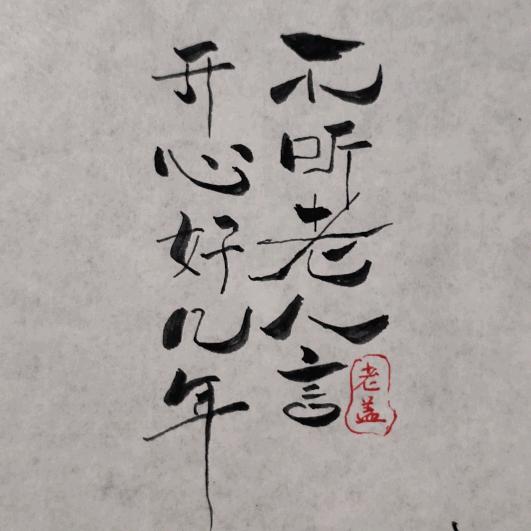 不听老人言
开心好几年
老盖